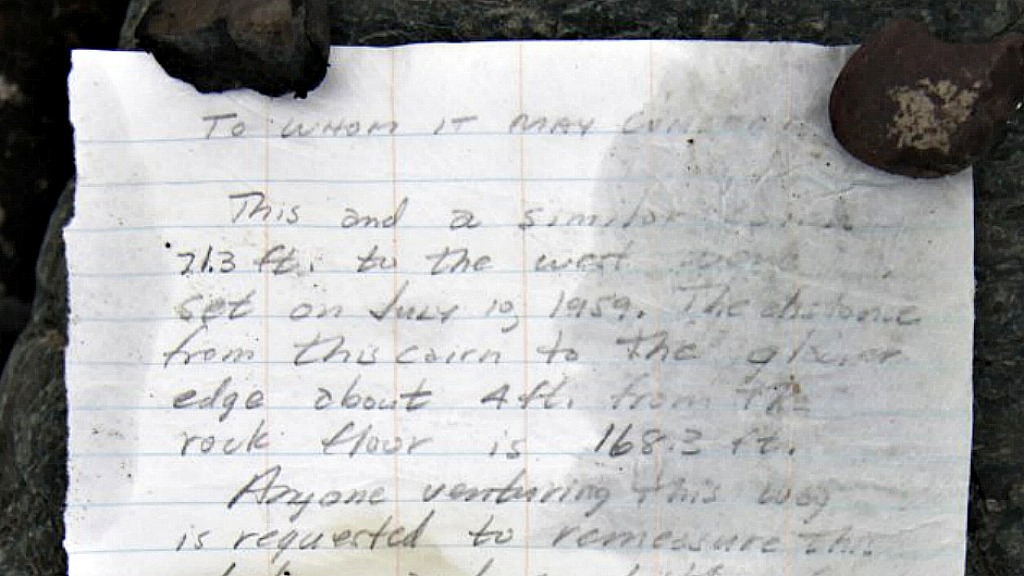 TO WHOM IT MAY CONCERN
This and a similar cairn
71.3 ft. to the west were
set on July 10, 1959. The distance
from this cairn to the glacier
edge about 4 ft. from the
rock floor is 168.3 ft.
Anyone venturing this way
is requested to remeasure this